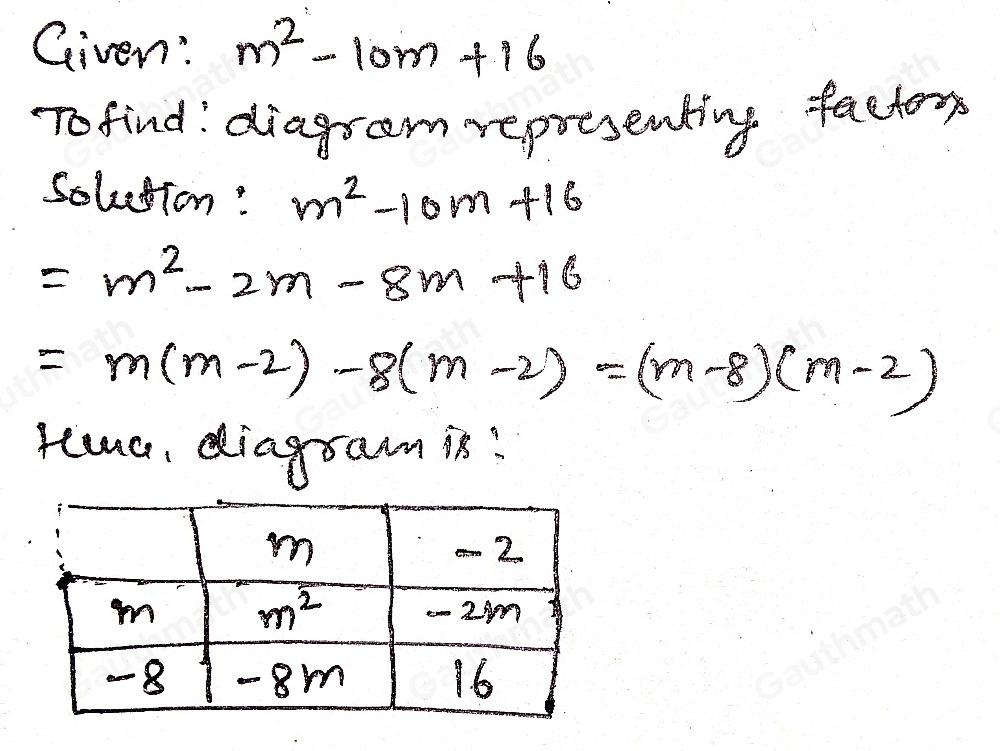 Given: m² - 10m + 16
To find: diagram representing factors
Solution: m² - 10m + 16
= m² - 2m - 8m + 16
= m(m - 2) - 8(m - 2) = (m - 8)(m - 2)
Hence, diagram is:
m -2
m m² -2m
-8 -8m 16
Gauthmath